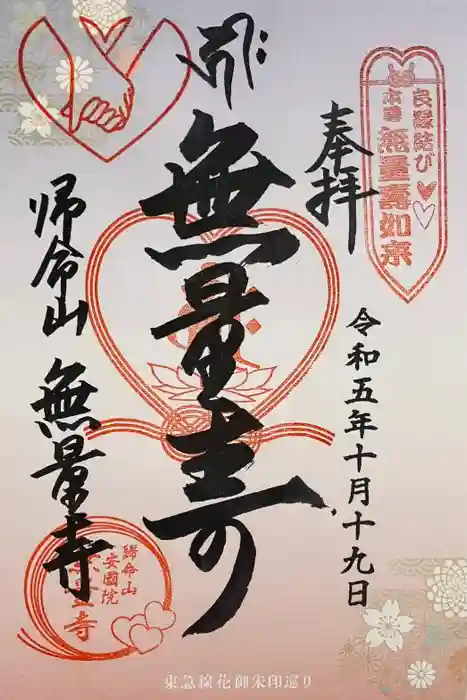 奉拝
良縁結び
本尊 無量壽如来
令和五年十月十九日
無量寿
帰命山 無量寺
歸命山
安國院
東急線花御朱印巡り